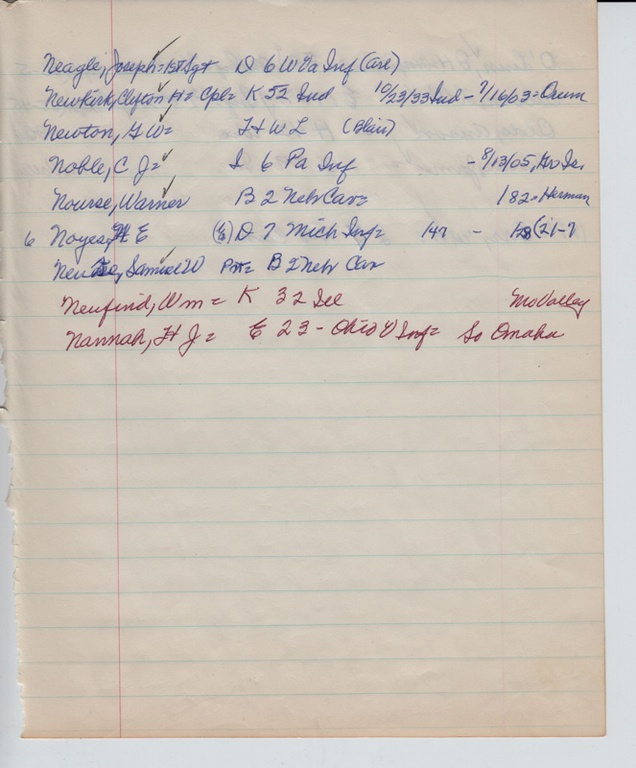 Neagle, Joseph = 1st Sgt D 6 W Va Inf (Arl)
Newkirk, Clyfton H = Cpl = K 52 Ind 10/23/33 Ind - 7/16/03 = Orum
Newton, G W = I H W L (Blair)
Noble, C J = I 6 Pa Inf - 8/13/05, Gr Is.
Nourse, Warner B 2 Nebr Cav = 182 = Herman
6 Noyes, H E (E) D 7 Mich Inf = 147 - (21-7
Samuel W Pvt = B 2 Nebr Cav
Neufind, Wm = K 32 Ill Mo Valley
Nannah, H J = E 23 - Ohio V Inf = So Omaha